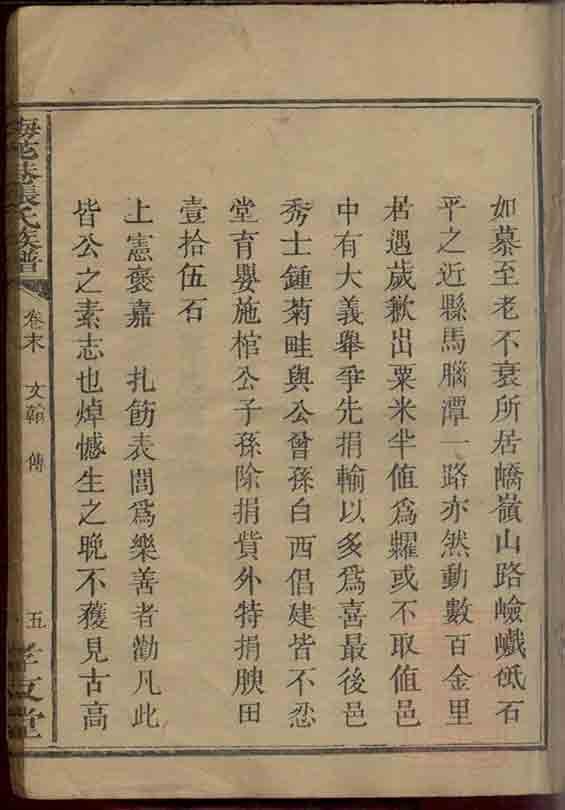 如慕至老不衰所居嶠嶺山路嶮巇砥石
平之近縣馬腦潭一路亦然動數百金里
居遇歲歉出粟米半值爲糶或不取值邑
中有大義舉爭先捐輸以多爲喜最後邑
秀士鍾菊畦與公曾孫白西倡建皆不忍
堂育嬰施棺公子孫除捐貲外特捐腴田
壹拾伍石
上憲褒嘉 扎飭表閭爲樂善者勸凡此
皆公之素志也焯憾生之晚不獲見古高
梅花巷張氏族譜
卷末 文翰 傳
五
孝友堂